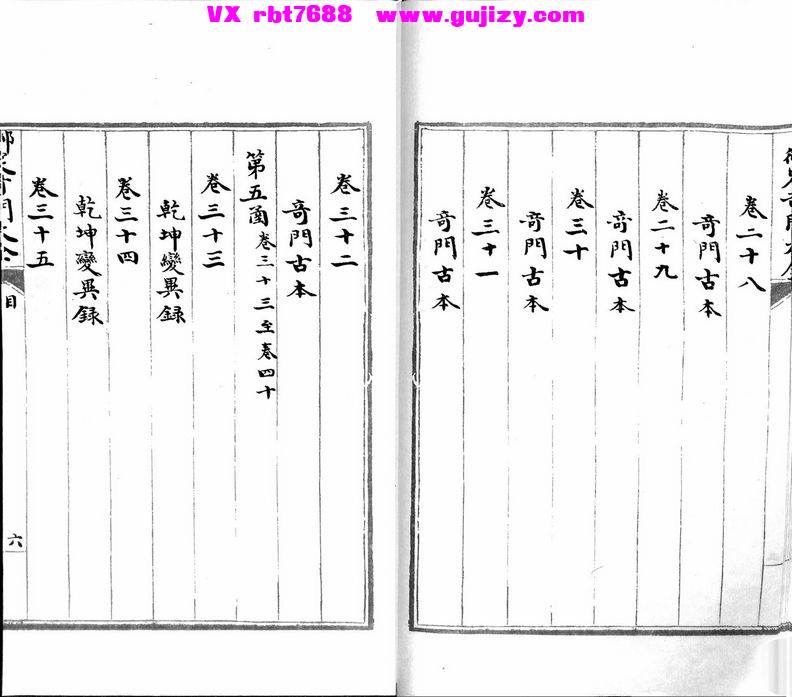 VX rbt7688 www.gujizy.com
卷二十八
奇門古本
卷二十九
奇門古本
卷三十
奇門古本
卷三十一
奇門古本
卷三十二
奇門古本
第五函 卷三十三至卷四十
卷三十三
乾坤變異録
卷三十四
乾坤變異録
卷三十五
目
六